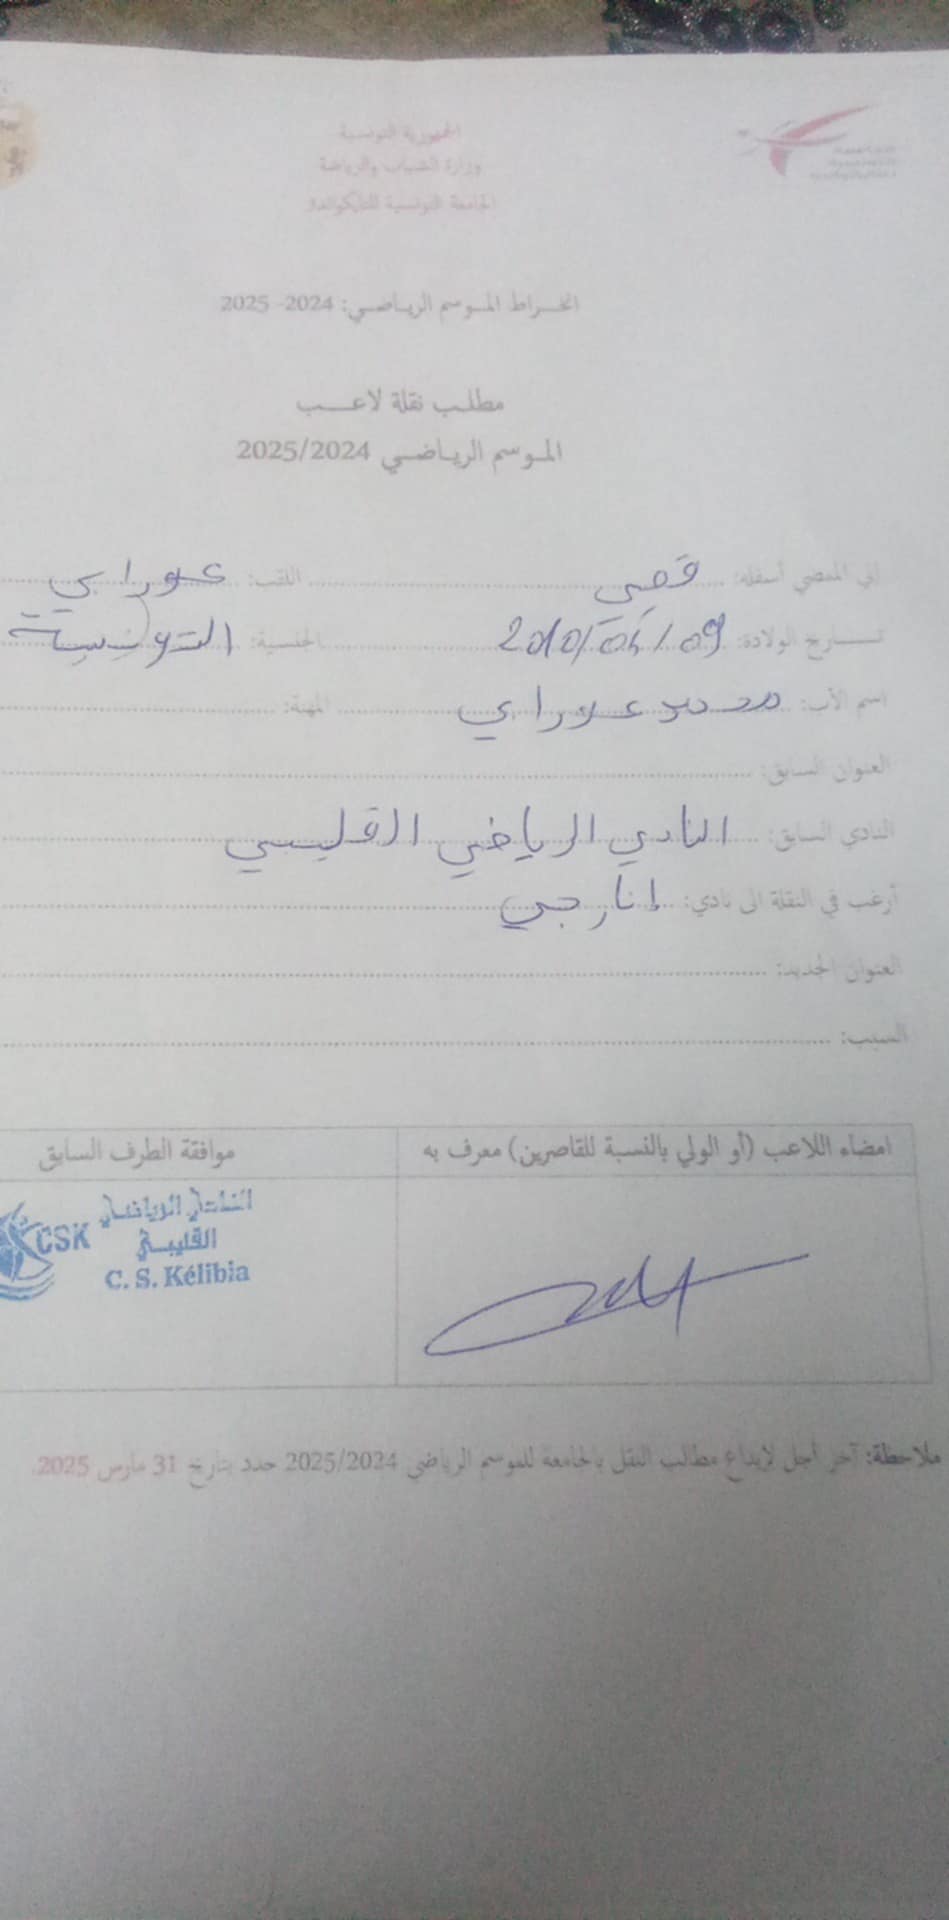 الجمهورية التونسية
وزارة الشباب والرياضة
الجامعة التونسية للتايكواندو
انخراط الموسم الرياضي: 2024- 2025
مطلب نقلة لاعب
الموسم الرياضي 2025/2024
إني الممضي أسفله: قصي اللقب: عورابي
تاريخ الولادة: 09/04/2010 الجنسية: التونسية
اسم الأب: محمد عورابي المهنة:
العنوان السابق:
النادي السابق: النادي الرياضي القليبي
أرغب في النقلة الى نادي: إنارجي
العنوان الجديد:
السبب:
امضاء اللاعب (أو الولي بالنسبة للقاصرين) معرف به
موافقة الطرف السابق
النادي الرياضي
القليبي
CSK
C. S. Kélibia
ملاحظة: آخر أجل لإيداع مطالب النقل بالجامعة للموسم الرياضي 2025/2024 حدد بتاريخ 31 مارس 2025.